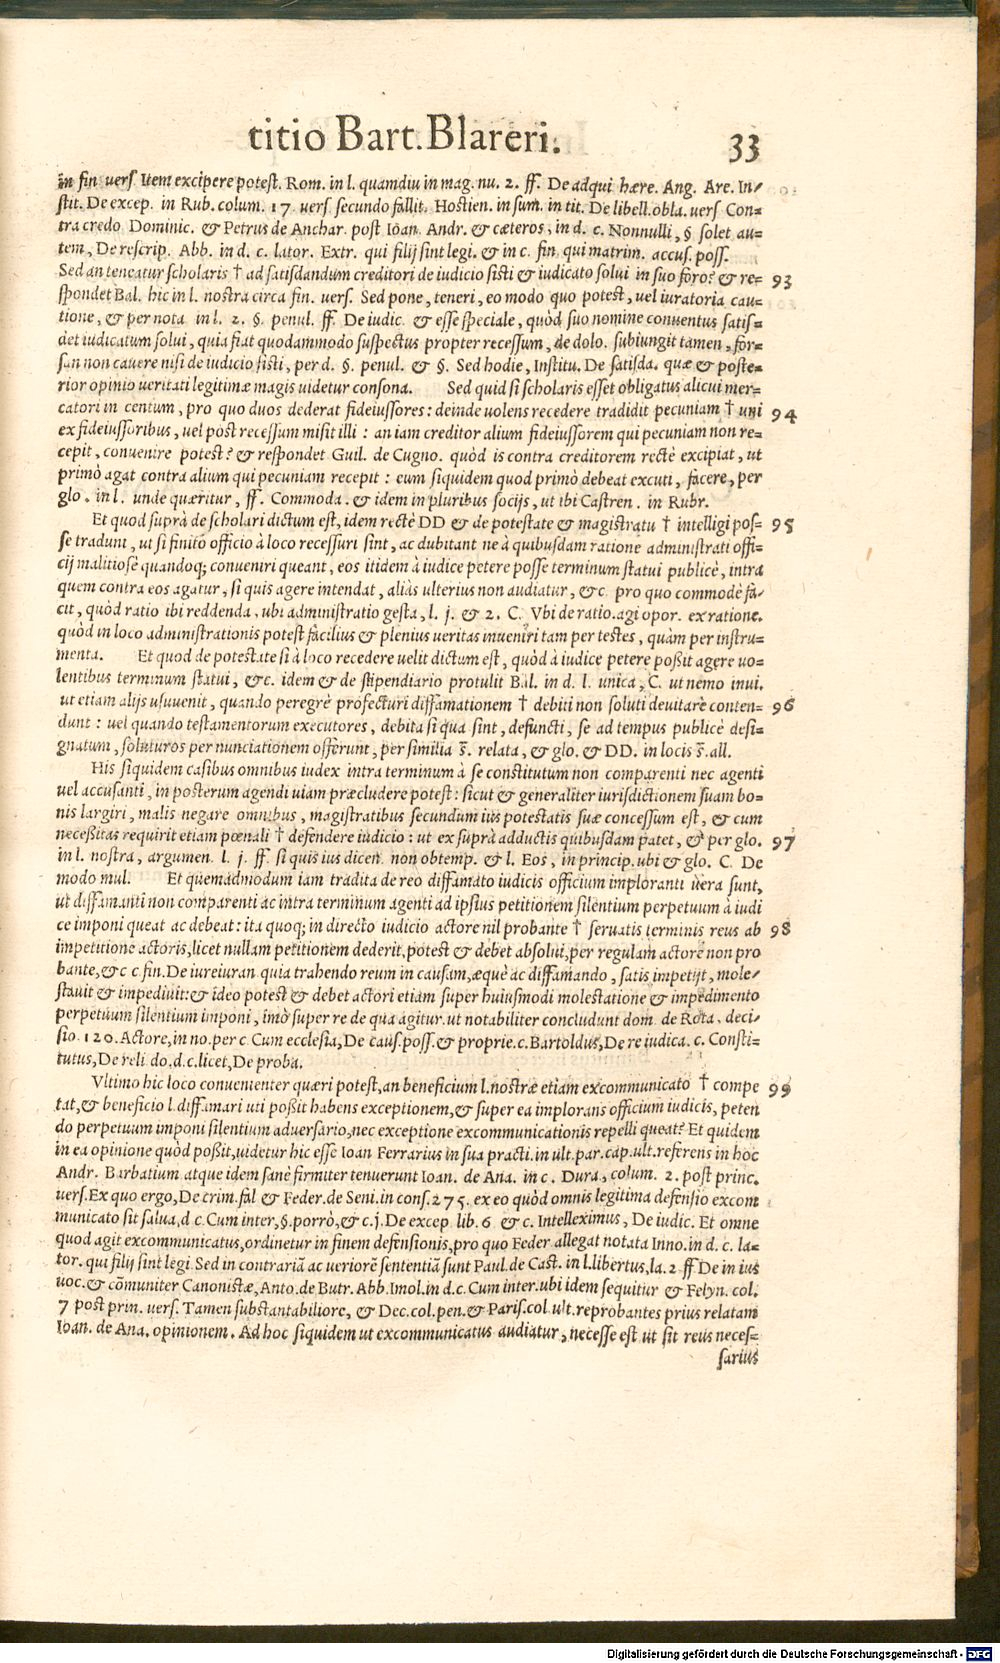 titio Bart. Blareri. 33
in fin vers Item excipere potest. Rom. in l. quamdiu in mag. nu. 2. ff. De adqui hære. Ang. Are. In/
stit. De excep. in Rub. colum. 17 vers secundo fallit. Hostien. in sum. in tit. De libell. obla. vers Con=
tra credo Dominic. & Petrus de Anchar. post Ioan. Andr. & cæteros, in d. c. Nonnulli, §. solet au=
tem, De rescrip. Abb. in d. c. lator. Extr. qui filij sint legi. & in c. fin. qui matrim. accus. poss.
Sed an teneatur scholaris † ad satisdandum creditori de iudicio sisti & iudicato solui in suo foro? & re= 93
spondet Bal. hic in l. nostra circa fin. vers. Sed pone, teneri, eo modo quo potest, vel iuratoria cau=
tione, & per nota in l. 2. §. penul. ff. De iudic. & esse speciale, quòd suo nomine conuentus satis=
det iudicatum solui, quia fiat quodammodo suspectus propter recessum, de dolo. subiungit tamen, for=
san non cauere nisi de iudicio sisti, per d. §. penul. & §. Sed hodie, Institu. De satisda. quæ & poste=
rior opinio veritati legitimæ magis videtur consona. Sed quid si scholaris esset obligatus alicui mer=
catori in centum, pro quo duos dederat fideiussores: deinde uolens recedere tradidit pecuniam † uni 94
ex fideiussoribus, vel post recessum misit illi: an iam creditor alium fideiussorem qui pecuniam non re=
cepit, conuenire potest? & respondet Guil. de Cugno. quòd is contra creditorem rectè excipiat, ut
primò agat contra alium qui pecuniam recepit: eum siquidem quod primò debeat excuti, facere, per
glo. in l. unde quæritur, ff. Commoda. & idem in pluribus socijs, ut ibi Castren. in Rubr.
Et quod suprà de scholari dictum est, idem rectè DD & de potestate & magistratu † intelligi pos= 95
se tradunt, ut si finito officio à loco recessuri sint, ac dubitant ne à quibusdam ratione administrati offi=
cij malitiosè quandoq; conueniri queant, eos itidem à iudice petere posse terminum statui publicè, intra
quem contra eos agatur, si quis agere intendat, aliàs ulterius non audiatur, &c pro quo commodè fa/
cit, quòd ratio ibi reddenda, ubi administratio gesta, l. j. & 2. C. Vbi de ratio. agi opor. ex ratione.
quòd in loco administrationis potest facilius & plenius veritas inueniri tam per testes, quàm per instru=
menta. Et quod de potestate si à loco recedere uelit dictum est, quòd à iudice petere poßit agere uo=
lentibus terminum statui, &c. idem & de stipendiario protulit Bal. in d. l. unica, C. ut nemo inui.
ut etiam alijs usuuenit, quando peregrè profecturi diffamationem † debiti non soluti deuitare conten= 96
dunt: uel quando testamentorum executores, debita si qua sint, defuncti, se ad tempus publicè desi=
gnatum, soluturos per nunciationem offerunt, per similia s̄. relata, & glo. & DD. in locis s̄. all.
His siquidem casibus omnibus iudex intra terminum à se constitutum non comparenti nec agenti
uel accusanti, in posterum agendi uiam præcludere potest: sicut & generaliter iurisdictionem suam bo=
nis largiri, malis negare omnibus, magistratibus secundum ius potestatis suæ concessum est, & cum
neceßitas requirit etiam pœnali † defendere iudicio: ut ex suprà adductis quibusdam patet, & per glo. 97
in l. nostra, argumen. l. j. ff. si quis ius dicen non obtemp. & l. Eos, in princip. ubi & glo. C. De
modo mul. Et quemadmodum iam tradita de reo diffamato iudicis officium imploranti uera sunt,
ut diffamanti non comparenti ac intra terminum agenti ad ipsius petitionem silentium perpetuum à iudi
ce imponi queat ac debeat: ita quoq; in directo iudicio actore nil probante † seruatis terminis reus ab 98
impetitione actoris, licet nullam petitionem dederit, potest & debet absolui, per regulam actore non pro
bante, &c c fin. De iureiuran. quia trahendo reum in causam, æquè ac diffamando, satis impetijt, mole/
stauit & impediuit: & ideo potest & debet actori etiam super huiusmodi molestatione & impedimento
perpetuum silentium imponi, imò super re de qua agitur. ut notabiliter concludunt dom. de Rota. deci/
sio. 120. Actore, in no. per c. Cum ecclesia, De caus. poss. & proprie. c. Bartoldus, De re iudica. c. Consti=
tutus, De reli. do. d. c. licet, De proba.
Vltimo hic loco conuenienter quæri potest, an beneficium l. nostræ etiam excommunicato † compe 99
tat, & beneficio l. diffamari uti poßit habens exceptionem, & super ea implorans officium iudicis, peten
do perpetuum imponi silentium aduersario, nec exceptione excommunicationis repelli queat? Et quidem
in ea opinione quòd poßit, uidetur hic esse Ioan Ferrarius in sua practi. in ult. par. cap. ult. referens in hoc
Andr. Barbatium atque idem sanè firmiter tenuerunt Ioan. de Ana. in c. Dura, colum. 2. post princ.
vers. Ex quo ergo, De crim. fal & Feder. de Seni. in cons. 275. ex eo quòd omnis legitima defensio excom
municato sit salua, d c. Cum inter, §. porrò, & c. j. De excep lib. 6 & c. Intelleximus, De iudic. Et omne
quod agit excommunicatus, ordinetur in finem defensionis, pro quo Feder allegat notata Inno. in d. c. la=
tor. qui filij sint legi. Sed in contrariā ac ueriorē sententiā sunt Paul. de Cast. in l. libertus, la. 2. ff De in ius
uoc. & cōmuniter Canonistæ, Anto. de Butr. Abb. Imol. in d. c. Cum inter. ubi idem sequitur & Felyn. col.
7 post prin. vers. Tamen substantabiliore, & Dec. col. pen. & Paris. col ult. reprobantes prius relatam
Ioan. de Ana. opinionem. Ad hoc siquidem ut excommunicatus audiatur, necesse est ut sit reus neces=
sarius
Digitalisierung gefördert durch die Deutsche Forschungsgemeinschaft - DFG